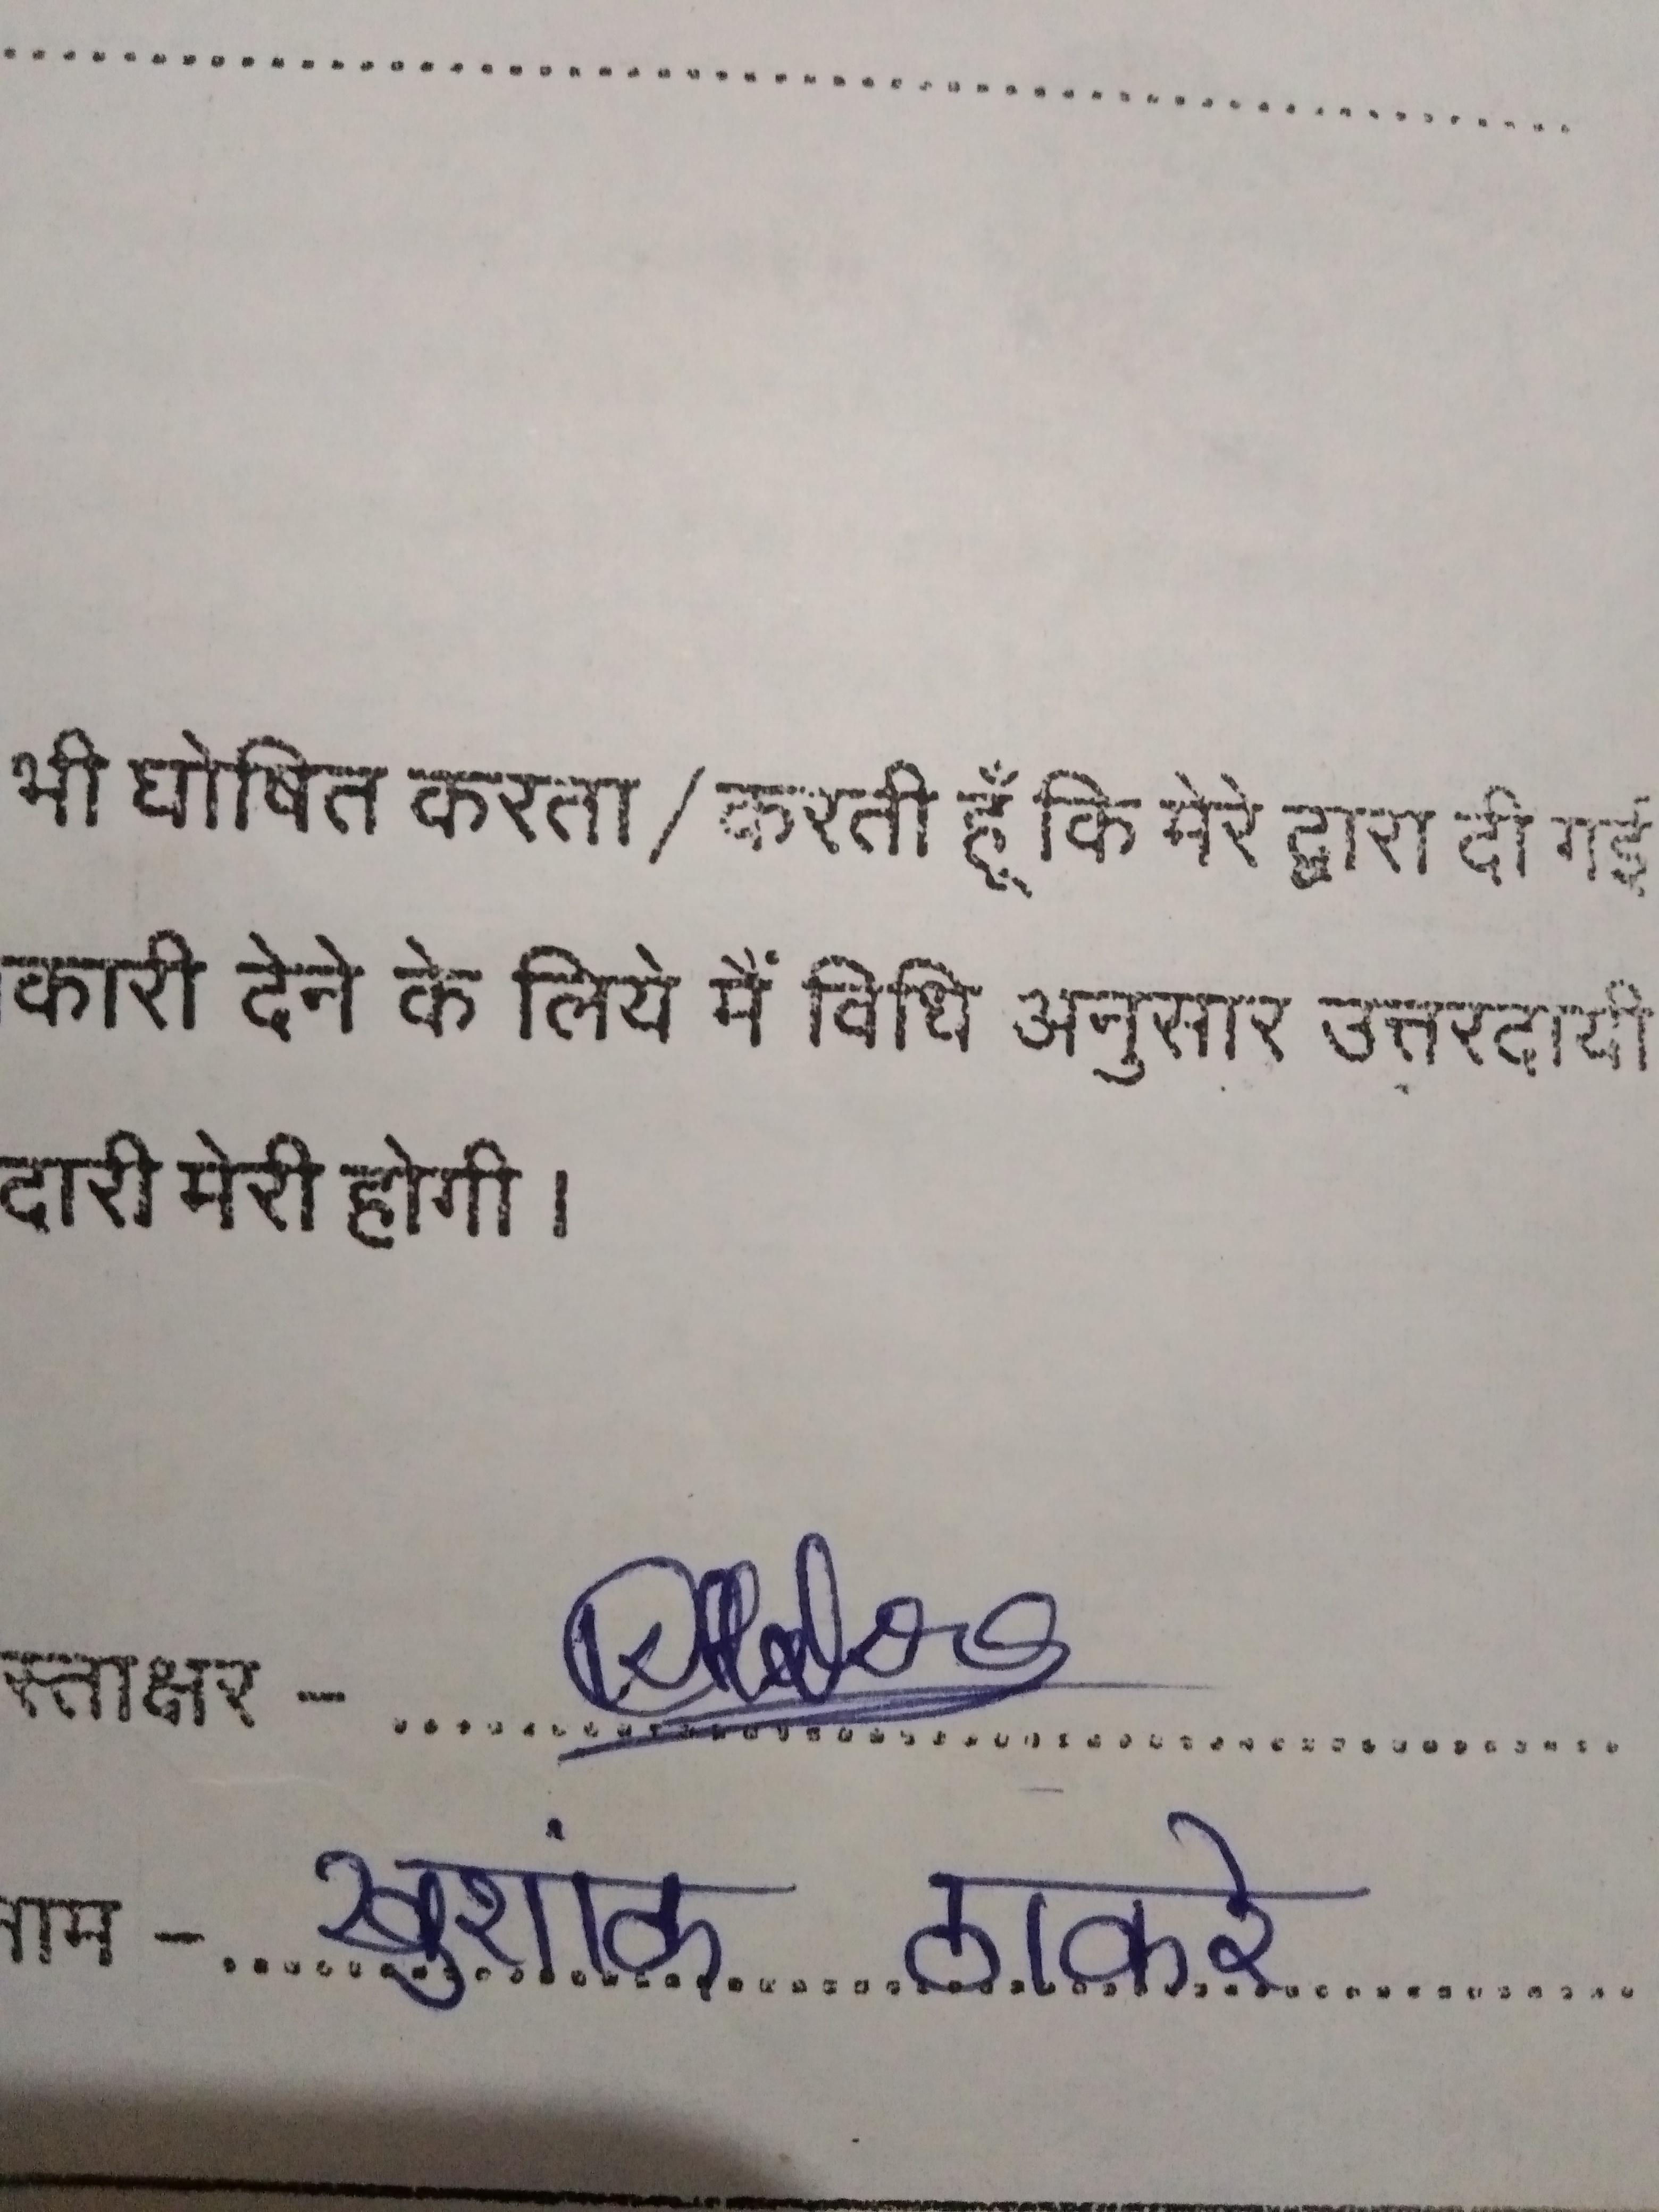 भी घोषित करता / करती हूँ कि मेरे द्वारा दी गई
कारी देने के लिये मैं विधि अनुसार उत्तरदायी
दारी मेरी होगी ।
स्ताक्षर -
नाम - खुशांक ठाकरे